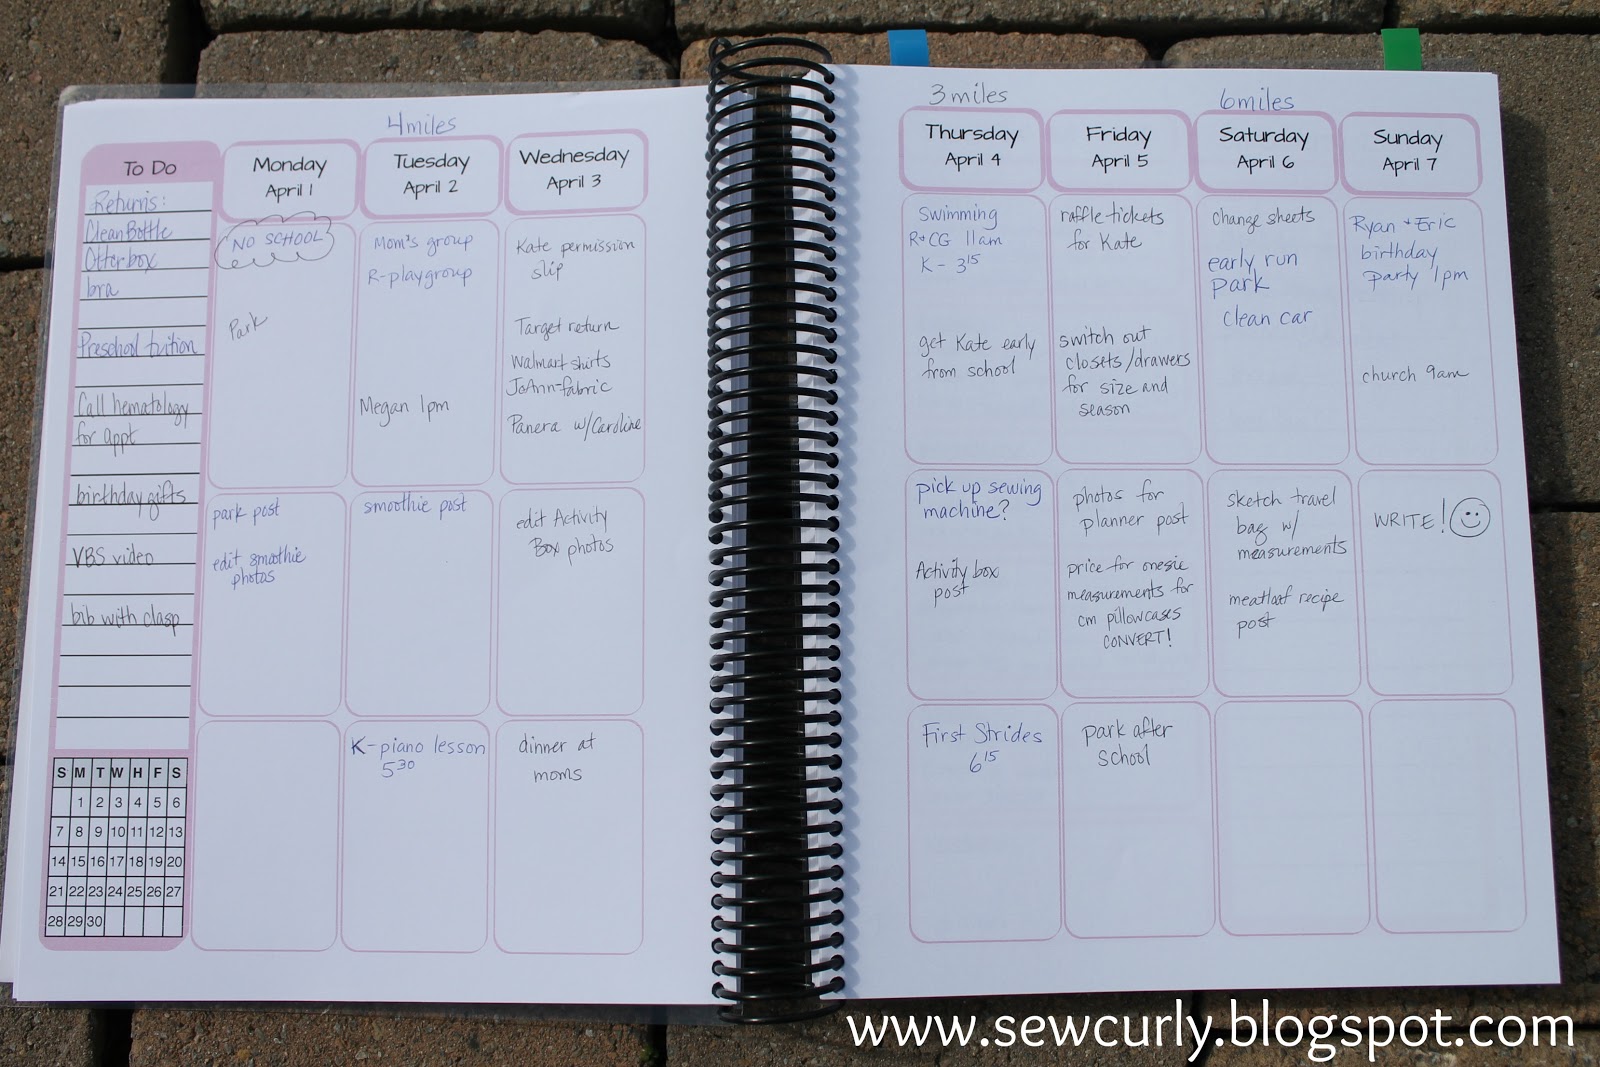 4miles
To Do
Returns:
CleanBottle
Otterbox
bra
Preschool tuition
Call hematology
for appt
birthday gifts
VBS video
bib with clasp
S M T W H F S
1 2 3 4 5 6
7 8 9 10 11 12 13
14 15 16 17 18 19 20
21 22 23 24 25 26 27
28 29 30
Monday
April 1
NO SCHOOL
Park
park post
edit smoothie
photos
Tuesday
April 2
Mom's group
R-playgroup
Megan 1pm
smoothie post
K-piano lesson
5 30
Wednesday
April 3
Kate permission
slip
Target return
Walmart shirts
JoAnn-fabric
Panera w/Caroline
edit Activity
Box photos
dinner at
moms
3miles
Thursday
April 4
Swimming
R+CG 11am
K- 3 15
get Kate early
from school
pick up sewing
machine?
Activity box
post
First Strides
6 15
Friday
April 5
raffle tickets
for Kate
switch out
closets/drawers
for size and
season
photos for
planner post
price for onesie
measurements for
cm pillowcases
CONVERT!
park after
school
6miles
Saturday
April 6
change sheets
early run
park
clean car
sketch travel
bag w/
measurements
meatloaf recipe
post
Sunday
April 7
Ryan + Eric
birthday
party 1pm
church 9am
WRITE!
www.sewcurly.blogspot.com